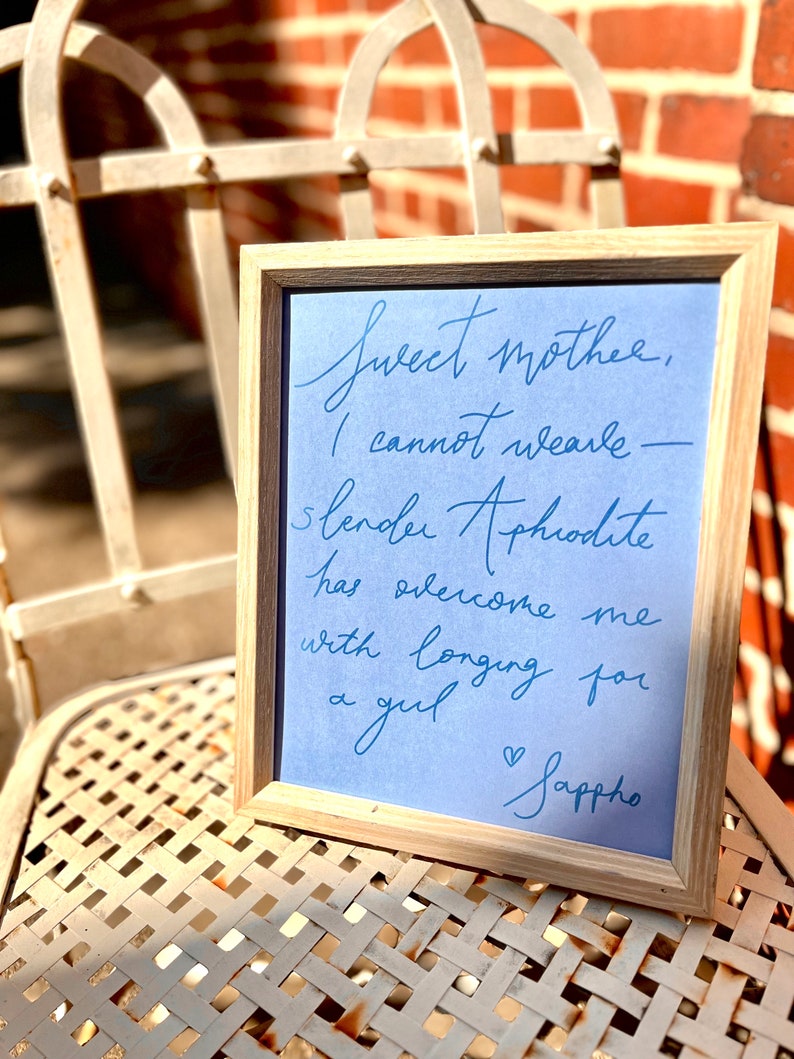 Sweet mother,
I cannot weave —
slender Aphrodite
has overcome me
with longing for
a girl
♡ Sappho